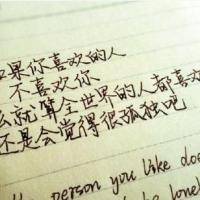 如果你喜欢的人
不喜欢你
么就算全世界的人都喜欢
还是会觉得很孤独吧
person you like doe
be lone